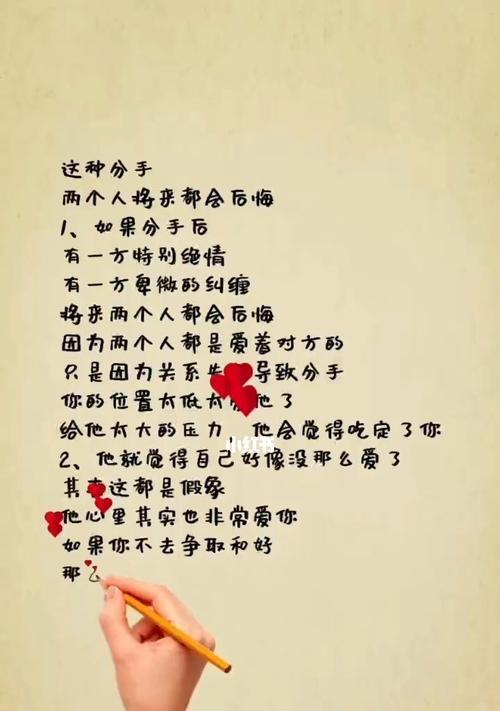 这种分手
两个人将来都会后悔
1、如果分手后
有一方特别绝情
有一方卑微的纠缠
将来两个人都会后悔
因为两个人都是爱着对方的
只是因为关系失 导致分手
你的位置太低太 他了
给他太大的压力 他会觉得吃定了你
小红书
2、他就觉得自己好像没那么爱了
其实这都是假象
他心里其实也非常爱你
如果你不去争取和好
那么